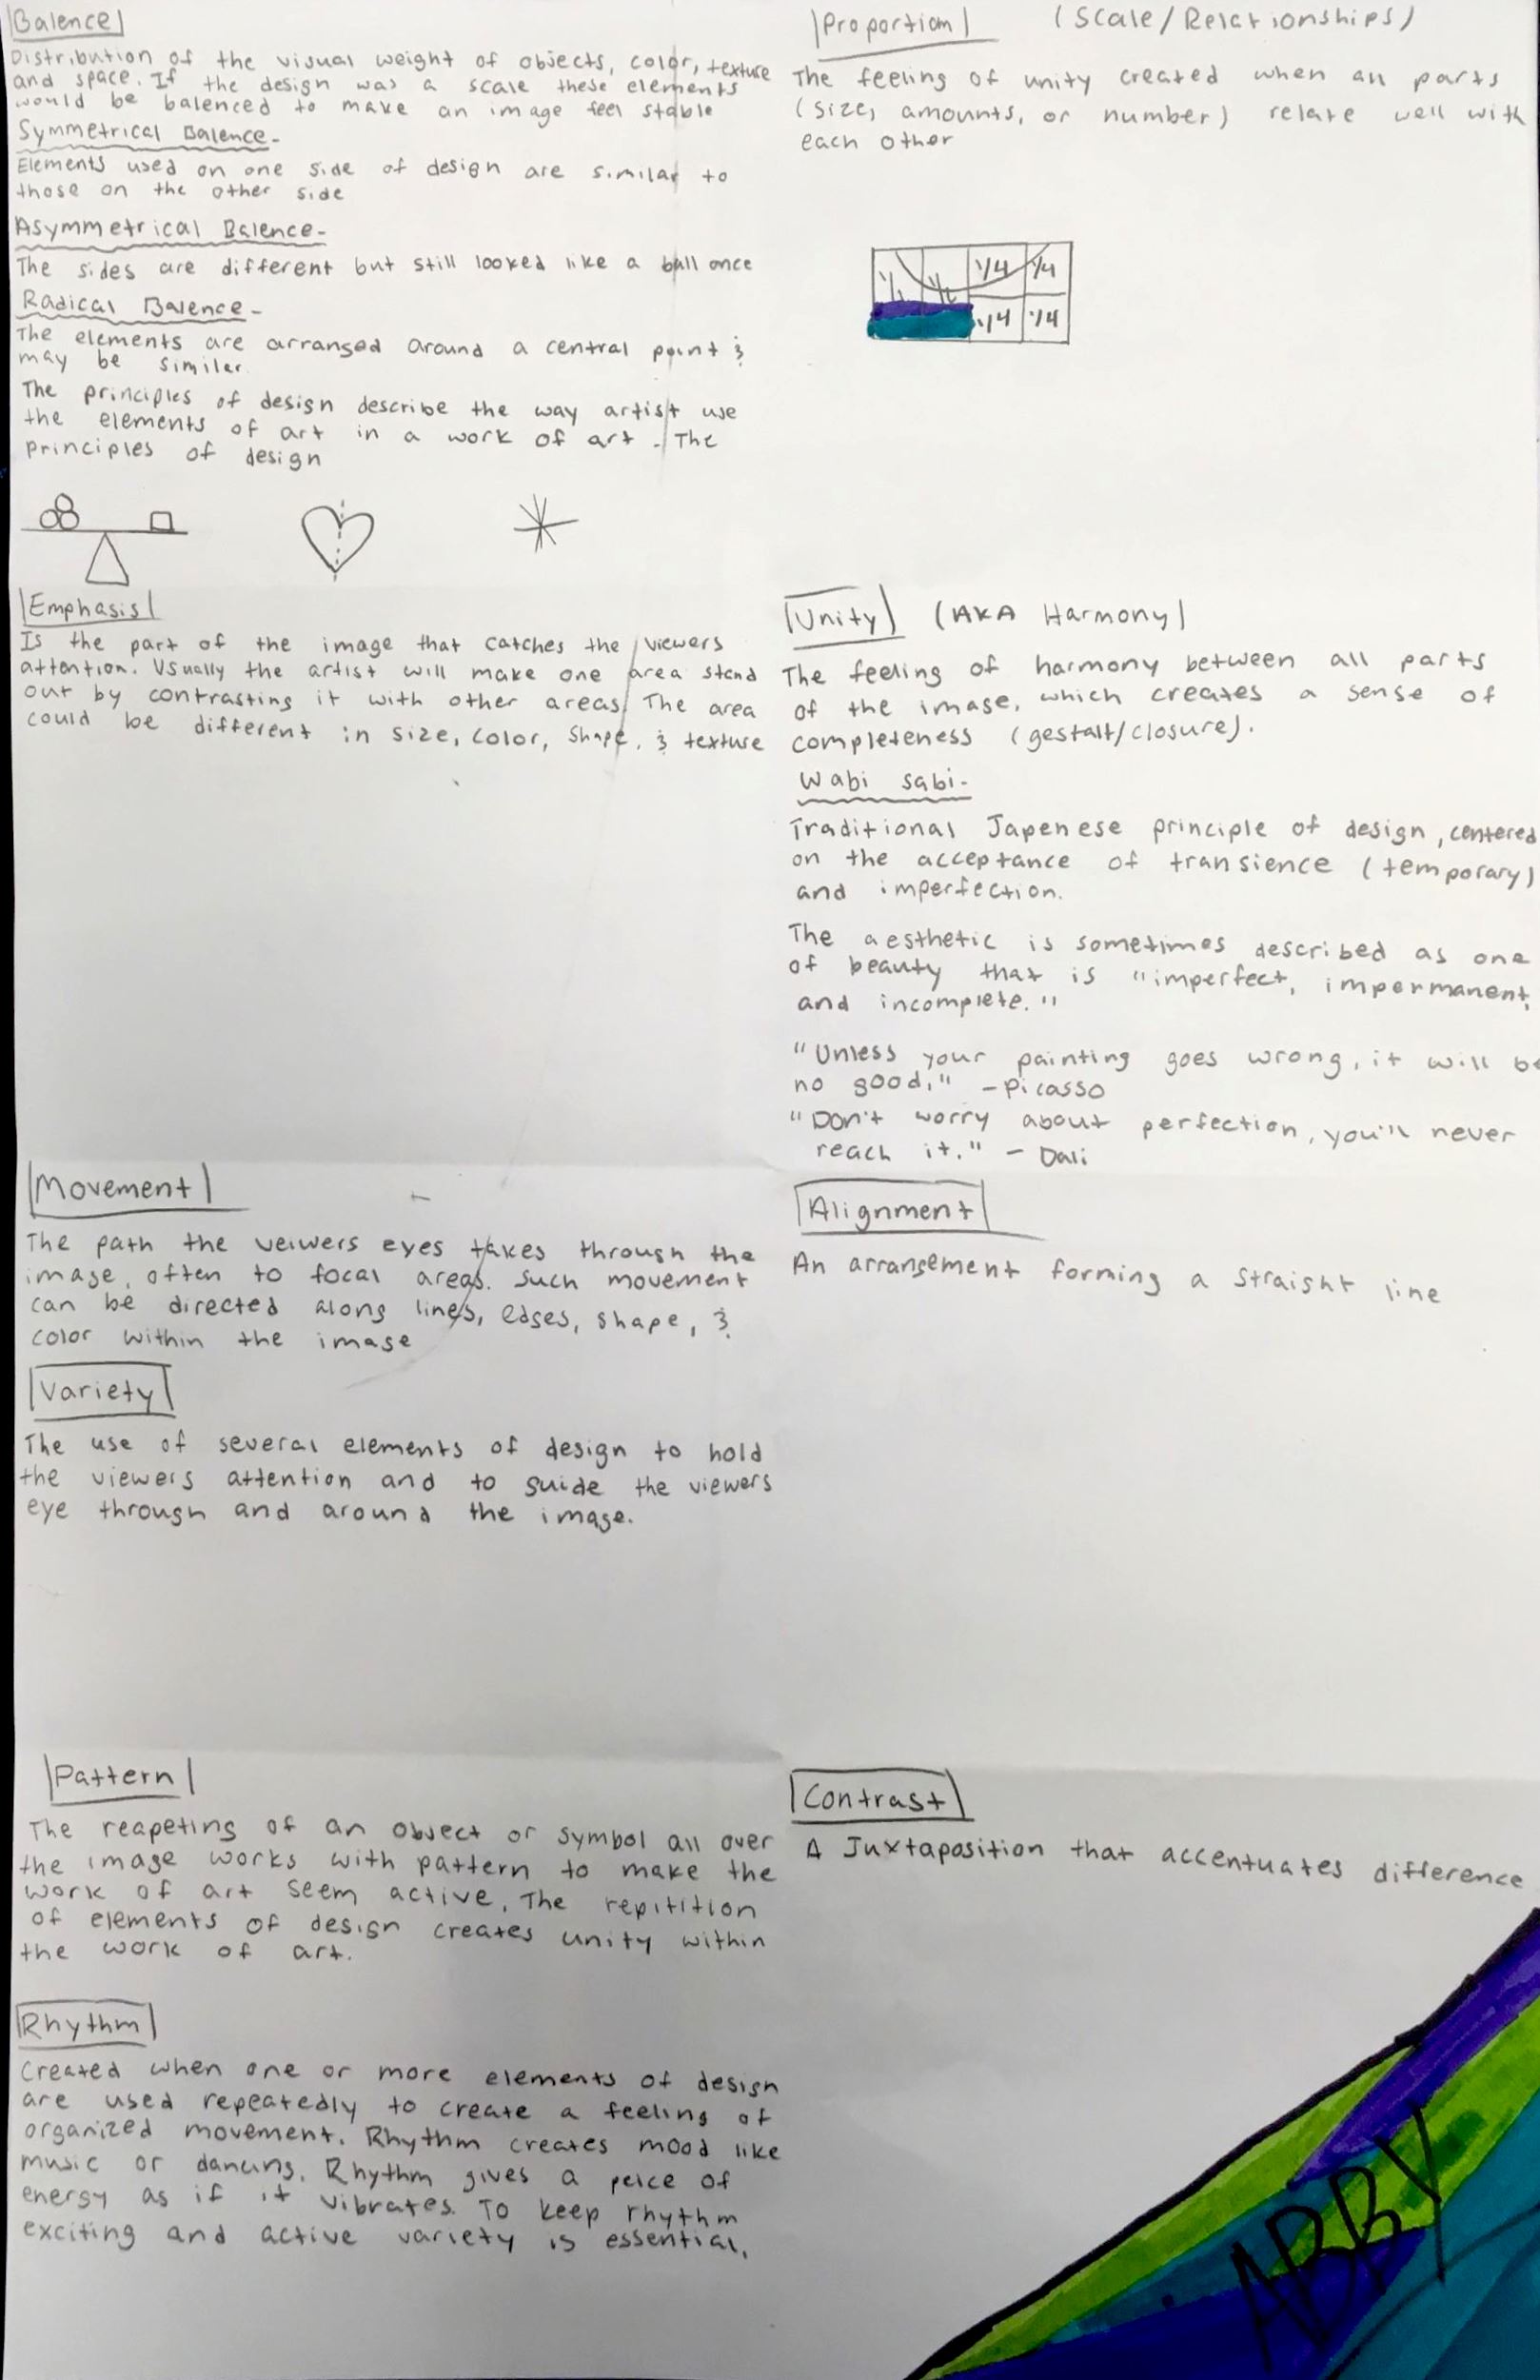 Balence
Distribution of the visual weight of objects, color, texture
and space. If the design was a scale these elements
would be balenced to make an image feel stable
Symmetrical Balence-
Elements used on one side of design are similar to
those on the other side
Asymmetrical Balence-
The sides are different but still looked like a ball once
Radical Balence-
The elements are arranged around a central point &
may be similar
The principles of design describe the way artist use
the elements of art in a work of art. The
principles of design
Emphasis
Is the part of the image that catches the viewers
attention. Usually the artist will make one area stand
out by contrasting it with other areas. The area
could be different in size, color, shape, & texture
Movement
The path the veiwers eyes takes through the
image, often to focal areas. Such movement
can be directed along lines, edges, shape, &
color within the image
Variety
The use of several elements of design to hold
the viewers attention and to guide the viewers
eye through and around the image.
Pattern
The reapeting of an object or symbol all over
the image works with pattern to make the
work of art seem active. The repitition
of elements of design creates unity within
the work of art.
Rhythm
Created when one or more elements of design
are used repeatedly to create a feeling of
organized movement. Rhythm creates mood like
music or dancing. Rhythm gives a peice of
energy as if it vibrates. To keep rhythm
exciting and active variety is essential.
Proportion (Scale/Relationships)
The feeling of unity created when all parts
(size, amounts, or number) relate well with
each other
1/4 1/4
1/4 1/4
Unity (AKA Harmony)
The feeling of harmony between all parts
of the image, which creates a sense of
completeness (gestalt/closure).
Wabi sabi-
Traditional Japenese principle of design, centered
on the acceptance of transience (temporary)
and imperfection.
The aesthetic is sometimes described as one
of beauty that is "imperfect, impermanent,
and incomplete."
"Unless your painting goes wrong, it will be
no good." -Picasso
"Don't worry about perfection, you'll never
reach it." - Dali
Alignment
An arrangement forming a straight line
Contrast
A Juxtaposition that accentuates difference
ABBY